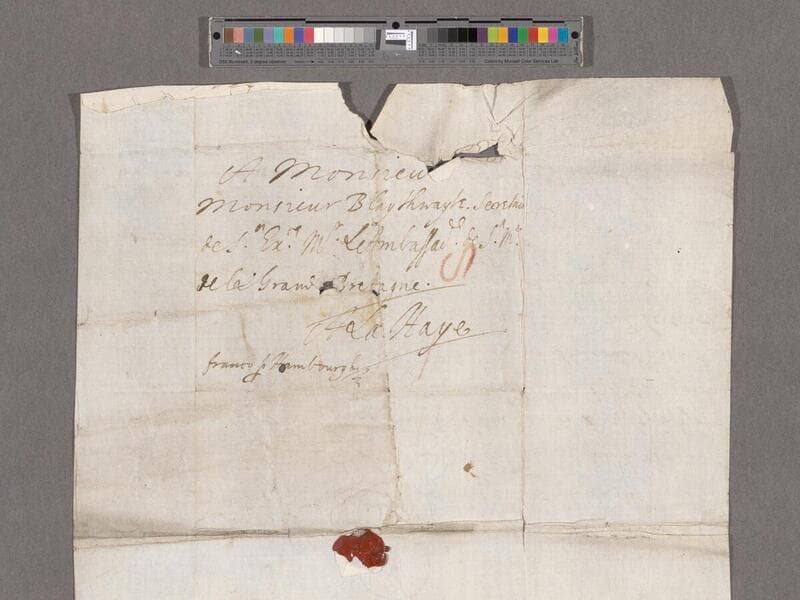 A Monsieur
Monsieur Blaythwayt. Secretai
de S.n Ex.ce M.r L'Ambassad.r de S. M.té
de la Grand Bretaigne.
A La Haye
franco p Hambourgh